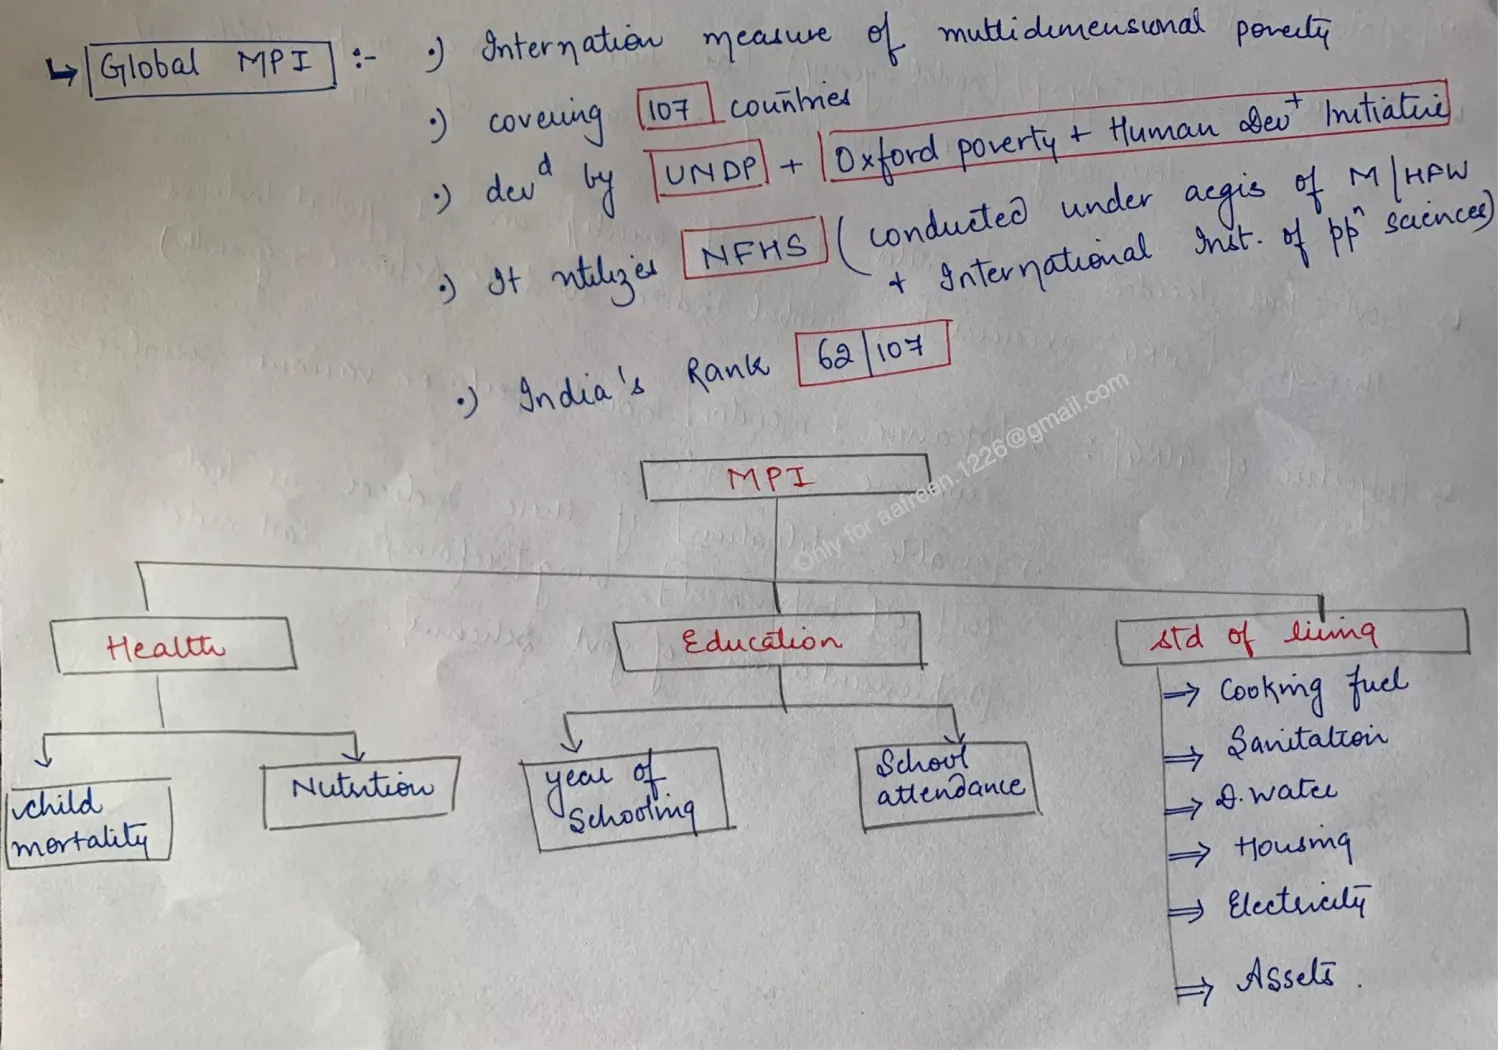 ↳ Global MPI :- •) Internation measure of multidimensional poverty
•) covering 107 countries
•) devᵈ by UNDP + Oxford poverty + Human Dev⁺ Initiative
•) It utilizes NFHS ( conducted under aegis of M/HFW
+ International Inst. of ppⁿ sciences)
•) India's Rank 62/107
Only for aafreen.1226@gmail.com
MPI
Health
Education
std of living
child
mortality
Nutrition
year of
Schooling
School
attendance
⇒ Cooking fuel
⇒ Sanitation
⇒ D. water
⇒ Housing
⇒ Electricity
⇒ Assets.